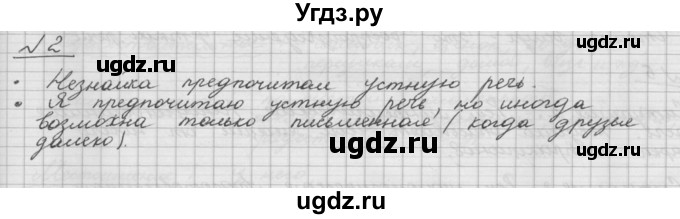 Угдз.ру
№2
• Незнайка предпочитал устную речь.
• Я предпочитаю устную речь, но иногда
возможна только письменная (когда друзья
далеко).
gdz.ru
gdz.ru
gdz.ru
gdz.ru
gdz.ru